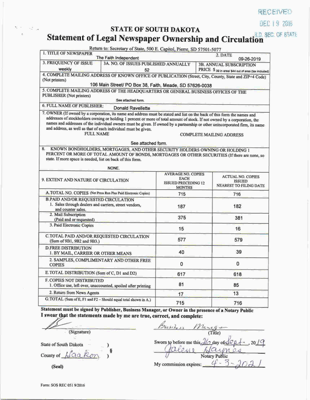 RECEIVED
DEC 19 2019
S.D. SEC. OF STATE
STATE OF SOUTH DAKOTA
Statement of Legal Newspaper Ownership and Circulation
Return to: Secretary of State, 500 E. Capitol, Pierre, SD 57501-5077
1. TITLE OF NEWSPAPER
The Faith Independent
2. DATE
09-26-2019
3. FREQUENCY OF ISSUE
weekly
3A. NO. OF ISSUES PUBLISHED ANNUALLY
52
3B. ANNUAL SUBSCRIPTION
PRICE $
4. COMPLETE MAILING ADDRESS OF KNOWN OFFICE OF PUBLICATION (Street, City, County, State and ZIP+4 Code)
(Not printers)
106 Main Street/ PO Box 38, Faith, Meade, SD 57626-0038
5. COMPLETE MAILING ADDRESS OF THE HEADQUARTERS OR GENERAL BUSINESS OFFICES OF THE
PUBLISHER (Not printers)
See attached form.
6. FULL NAME OF PUBLISHER:
Donald Ravellette
7. OWNER (If owned by a corporation, its name and address must be stated and list on the back of this form the names and
addresses of stockholders owning or holding 1 percent or more of total amount of stock. If not owned by a corporation, the
names and addresses of the individual owners must be given. If owned by a partnership or other unincorporated firm, its name
and address, as well as that of each individual must be given.
FULL NAME
COMPLETE MAILING ADDRESS
See attached form.
8. KNOWN BONDHOLDERS, MORTGAGES, AND OTHER SECURITY HOLDERS OWNING OR HOLDING 1
PERCENT OR MORE OF TOTAL AMOUNT OF BONDS, MORTGAGES OR OTHER SECURITIES (If there are none, so
state. If more space is needed, list on back of this form.
NONE.
9. EXTENT AND NATURE OF CIRCULATION
AVERAGE NO. COPIES
EACH
ISSUES PRECEEDING 12
MONTHS
ACTUAL NO. COPIES
ISSUED
NEAREST TO FILING DATE
A. TOTAL NO. COPIES (Net Press Run Plus Paid Electronic Copies)
715
716
B. PAID AND/OR REQUESTED CIRCULATION
1. Sales through dealers and carriers, street vendors,
and counter sales.
187
182
2. Mail Subscription
(Paid and or requested)
375
381
3. Paid Electronic Copies
15
16
C. TOTAL PAID AND/OR REQUESTED CIRCULATION
(Sum of 9B1, 9B2 and 9B3.)
577
579
D. FREE DISTRIBUTION
1. BY MAIL, CARRIER OR OTHER MEANS
40
39
2. SAMPLES, COMPLIMENTARY AND OTHER FREE
COPIES
0
0
E. TOTAL DISTRIBUTION (Sum of C, D1 and D2)
617
618
F. COPIES NOT DISTRIBUTED
1. Office use, left over, unaccounted, spoiled after printing
81
85
2. Return from News Agents
17
13
G. TOTAL (Sum of E, F1 and F2 – Should equal total shown in A.)
715
716
Statement must be signed by Publisher, Business Manager, or Owner in the presence of a Notary Public
I swear that the statements made by me are true, correct, and complete:
Business Manager
(Signature)
(Title)
State of South Dakota )
§
County of Haakon )
Sworn to before me this 26 day of Sept., 2019
Notary Public
(Seal)
My commission expires: 9-3-2021
Form: SOS REC 051 9/2016